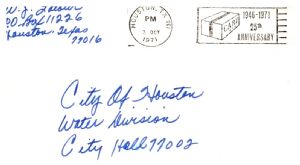 W. J. Lacour
PO Box 11226
Houston, Texas
77016
HOUSTON, TX
PM
7 OCT
1971
CARE
1946-1971
25th
ANNIVERSARY
City Of Houston
Water Division
City Hall 77002